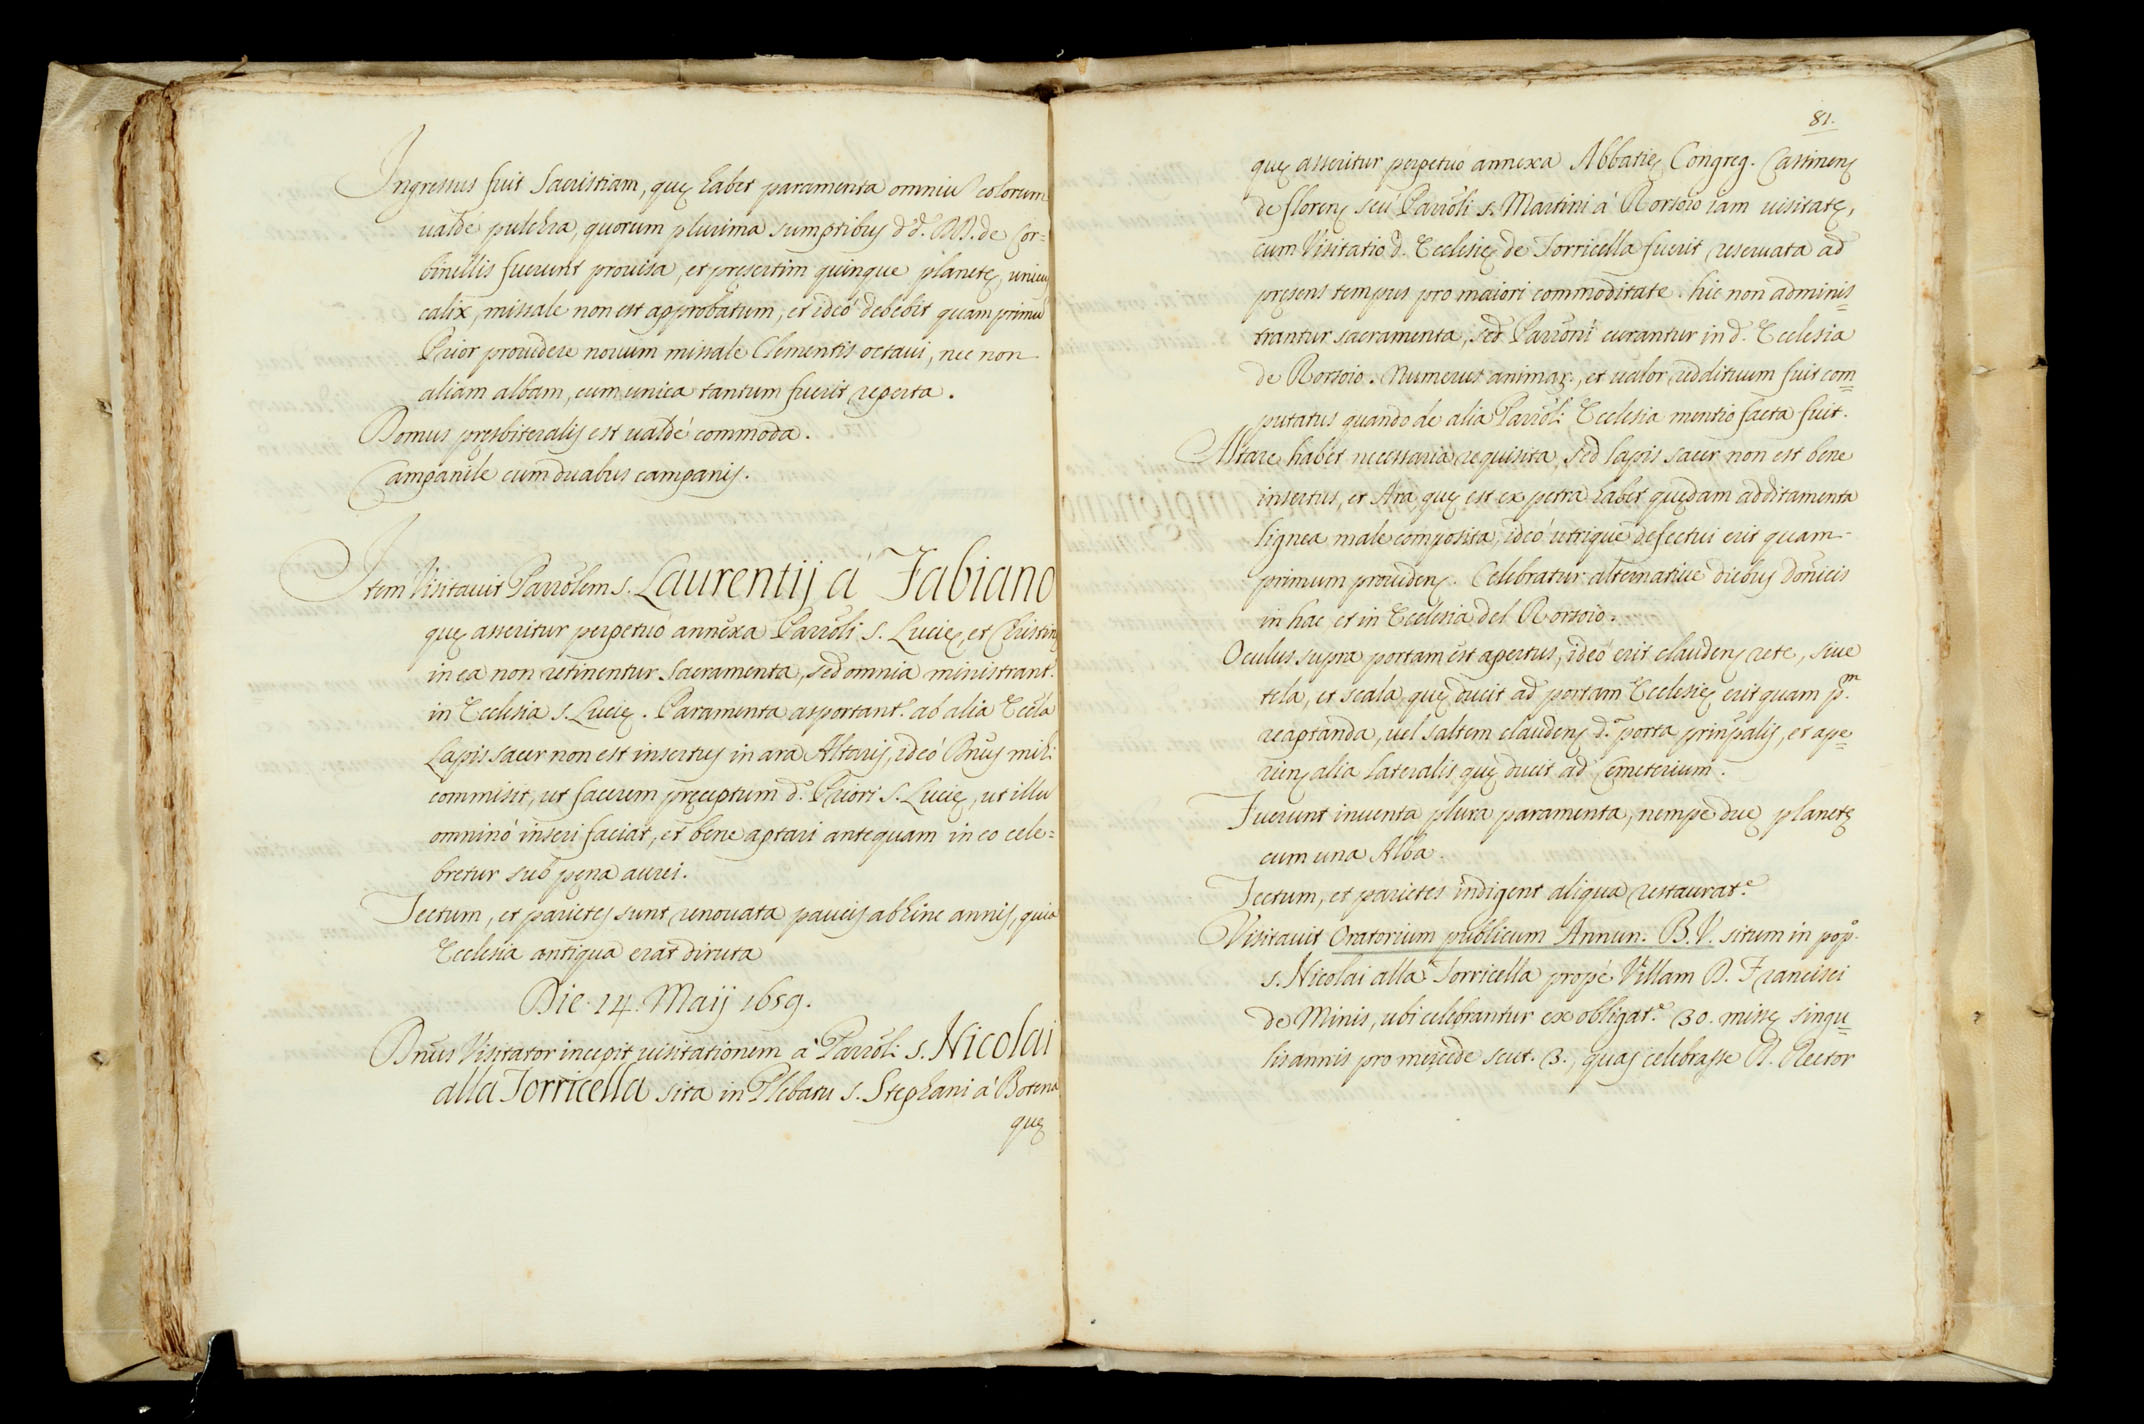 Ingressus fuit Sacristiam, quę habet paramenta omniũ colorum
valdé pulchra, quorum plurima sumptibus dd. DD. de Cor=
binellis fuerunt provisa, et presertim quinque planetę, unicus
calix, missale non est approbatum, et ideó debebit quam primũ
Prior providere novum missale Clementis octavi, nec non
aliam albam, cum unica tantum fuerit reperta.
Domus pręsbiteralis est valdé commoda.
Campanile cum duabus campanis.
Item Visitavit Parrõlem S. Laurentij á Fabiano
quę asseritur perpetuó annexa Parrõli S. Lucię, et Christinę
in ea non retinentur sacramenta, sed omnia ministrant.
in Ecclesia S. Lucię. Paramenta asportant. ab alia Eccła
Lapis sacer non est insertus in ara Altaris, ideó Dnũs mihi
commisit, ut facerem pręceptum d. Priori S. Lucię, ut illũ
omninó inseri faciat, et bene aptari antequam in eo cele=
bretur sub pęna aurei.
Tectum, et parietes sunt renovata paucis abhinc annis, quia
Ecclesia antiqua erat diruta
Die 14. Maij 1659.
Dnũs Visitator incepit visitationem á Parrõli S. Nicolai
alla Torricella sita in Plebatu S. Stephani á Botena
quę
81.
quę asseritur perpetuó annexa Abbatię Congreg. Cassinens
de florens seú Parrõli S. Martini á Rorsoio iam visitatę,
cum Visitatio d. Ecclesię de Torricella fuerit reservata ad
pręsens tempus pro maiori commoditate. hic non adminis=
trantur sacramenta, sed Parroni curantur in d. Ecclesia
de Rorsoio. Numerus animar., et valor reddituum fuit com=
putatus quando de alia Parrõli Ecclesia mentio facta fuit.
Altare habet necessaria requisita, sed lapis sacer non est bene
insertus, et Ara, quę est ex petra habet quędam additamenta
lignea male composita, ideó utrique defectui erit quam-
primum providens. Celebratur alternative diebus dońicis
in hac et in Ecclesia del Rorsoio.
Oculus supra portam est apertus, ideó erit claudens rete, sive
tela, et scala, quę ducit ad portam Ecclesię erit quam pm.
reaptanda, vel saltem claudens d.a porta prinpalis, et ape=
riens alia lateralis quę ducit ad Cęmeterium.
Fuerunt inventa plura paramenta, nempe duę planetę
cum una Alba.
Tectum, et parietes indigent aliqua restaurat.e
Visitavit Oratorium publicum Annun. B.V. situm in pop.o
S. Nicolai alla Torricella propé Villam D. Francisci
de Minis, ubi celebrantur ex obligat.e 30. missę singu=
lis annis pro mercede scut. 3., quas celebrasse R. Rector